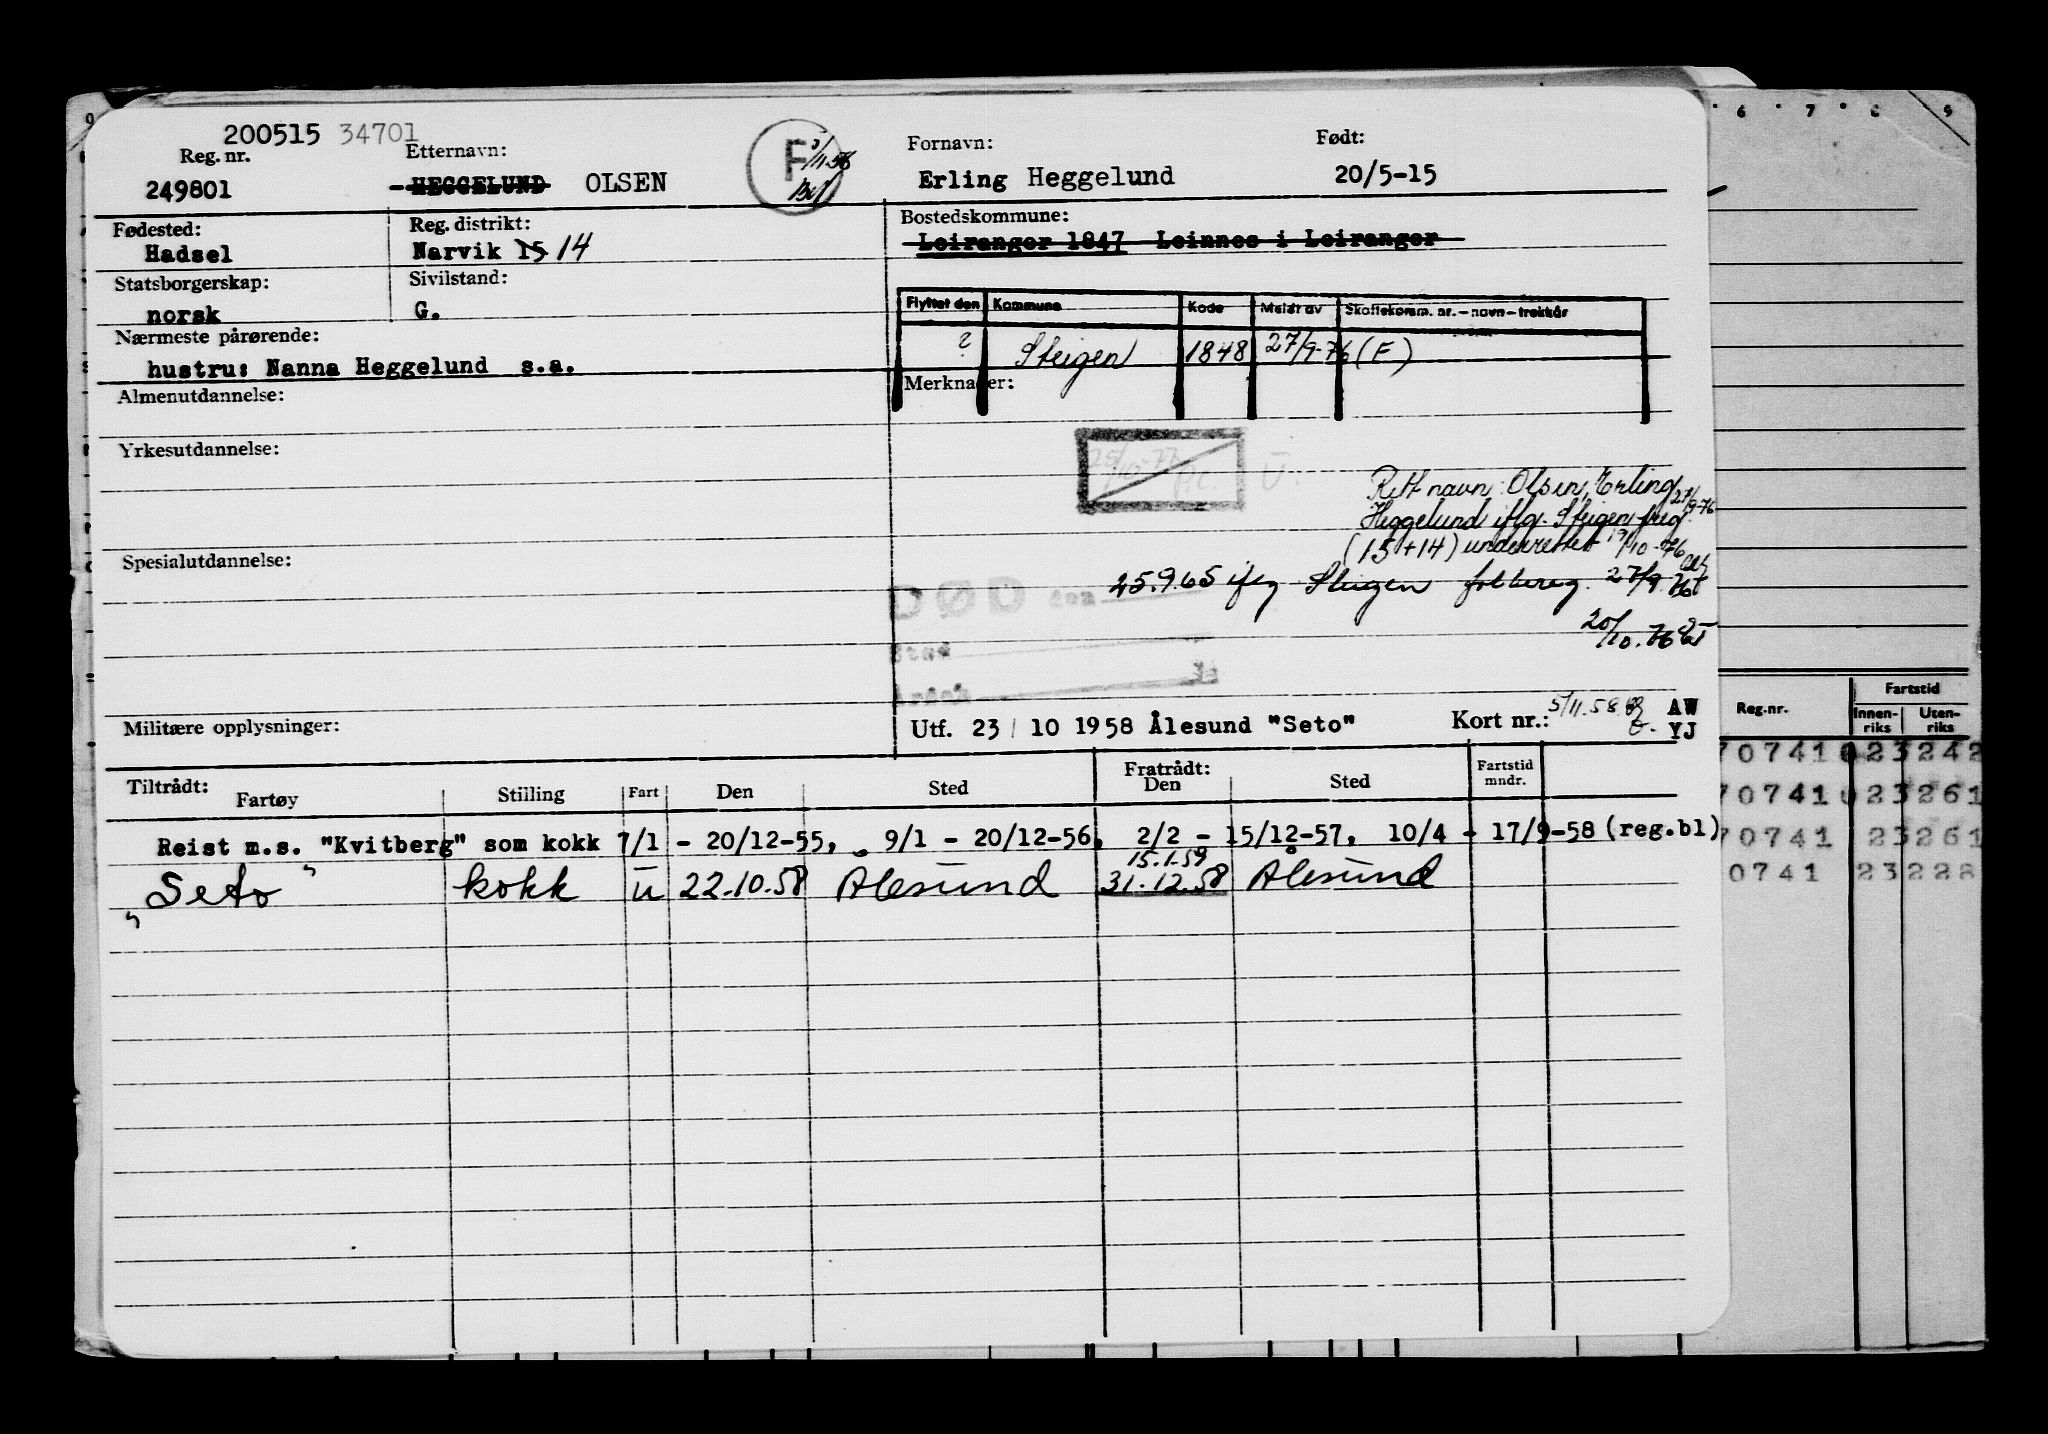 200515 34701
Reg. nr.
249801
Etternavn:
HEGGELUND OLSEN
F
Fornavn:
Erling Heggelund
Født:
20/5-15
Fødested:
Hadsel
Reg. distrikt:
Narvik 15 14
Bostedskommune:
Leiranger 1847 Leinnes i Leiranger
Statsborgerskap:
norsk
Sivilstand:
G.
Flyttet den Kommune Kode Meldt av Skattekomm. nr. – navn – trekkår
? Steigen 1848 27/9-76 (F)
Nærmeste pårørende:
hustru: Nanna Heggelund s.a.
Merknader:
Almenutdannelse:
Yrkesutdannelse:
25/10-77 U.
Rett navn: Olsen, Erling 27/9-76
Heggelund iflg. Steigen freg.
(15+14) underrettet 19/10-76
Spesialutdannelse:
DØD den 25.9.65 ifg Steigen folkereg. 27/9.76
Sted
20/10.76
Årsak
Militære opplysninger:
Utf. 23/10 1958 Ålesund "Seto"
Kort nr.: 5/11.58
AW
YJ
Tiltrådt:
Fartøy Stilling Fart Den Sted
Fratrådt:
Den Sted
Fartstid
mndr.
Reist m.s. "Kvitberg" som kokk 7/1 - 20/12-55, 9/1 - 20/12-56, 2/2 - 15/12-57, 10/4 - 17/9-58 (reg.bl)
15.1.59
"Seto" kokk U 22.10.58 Ålesund 31.12.58 Ålesund
6 7 8 9
Reg.nr.
Fartstid
Innen-
riks
Uten-
riks
70741 023242
70741 023261
70741 23261
0741 23228